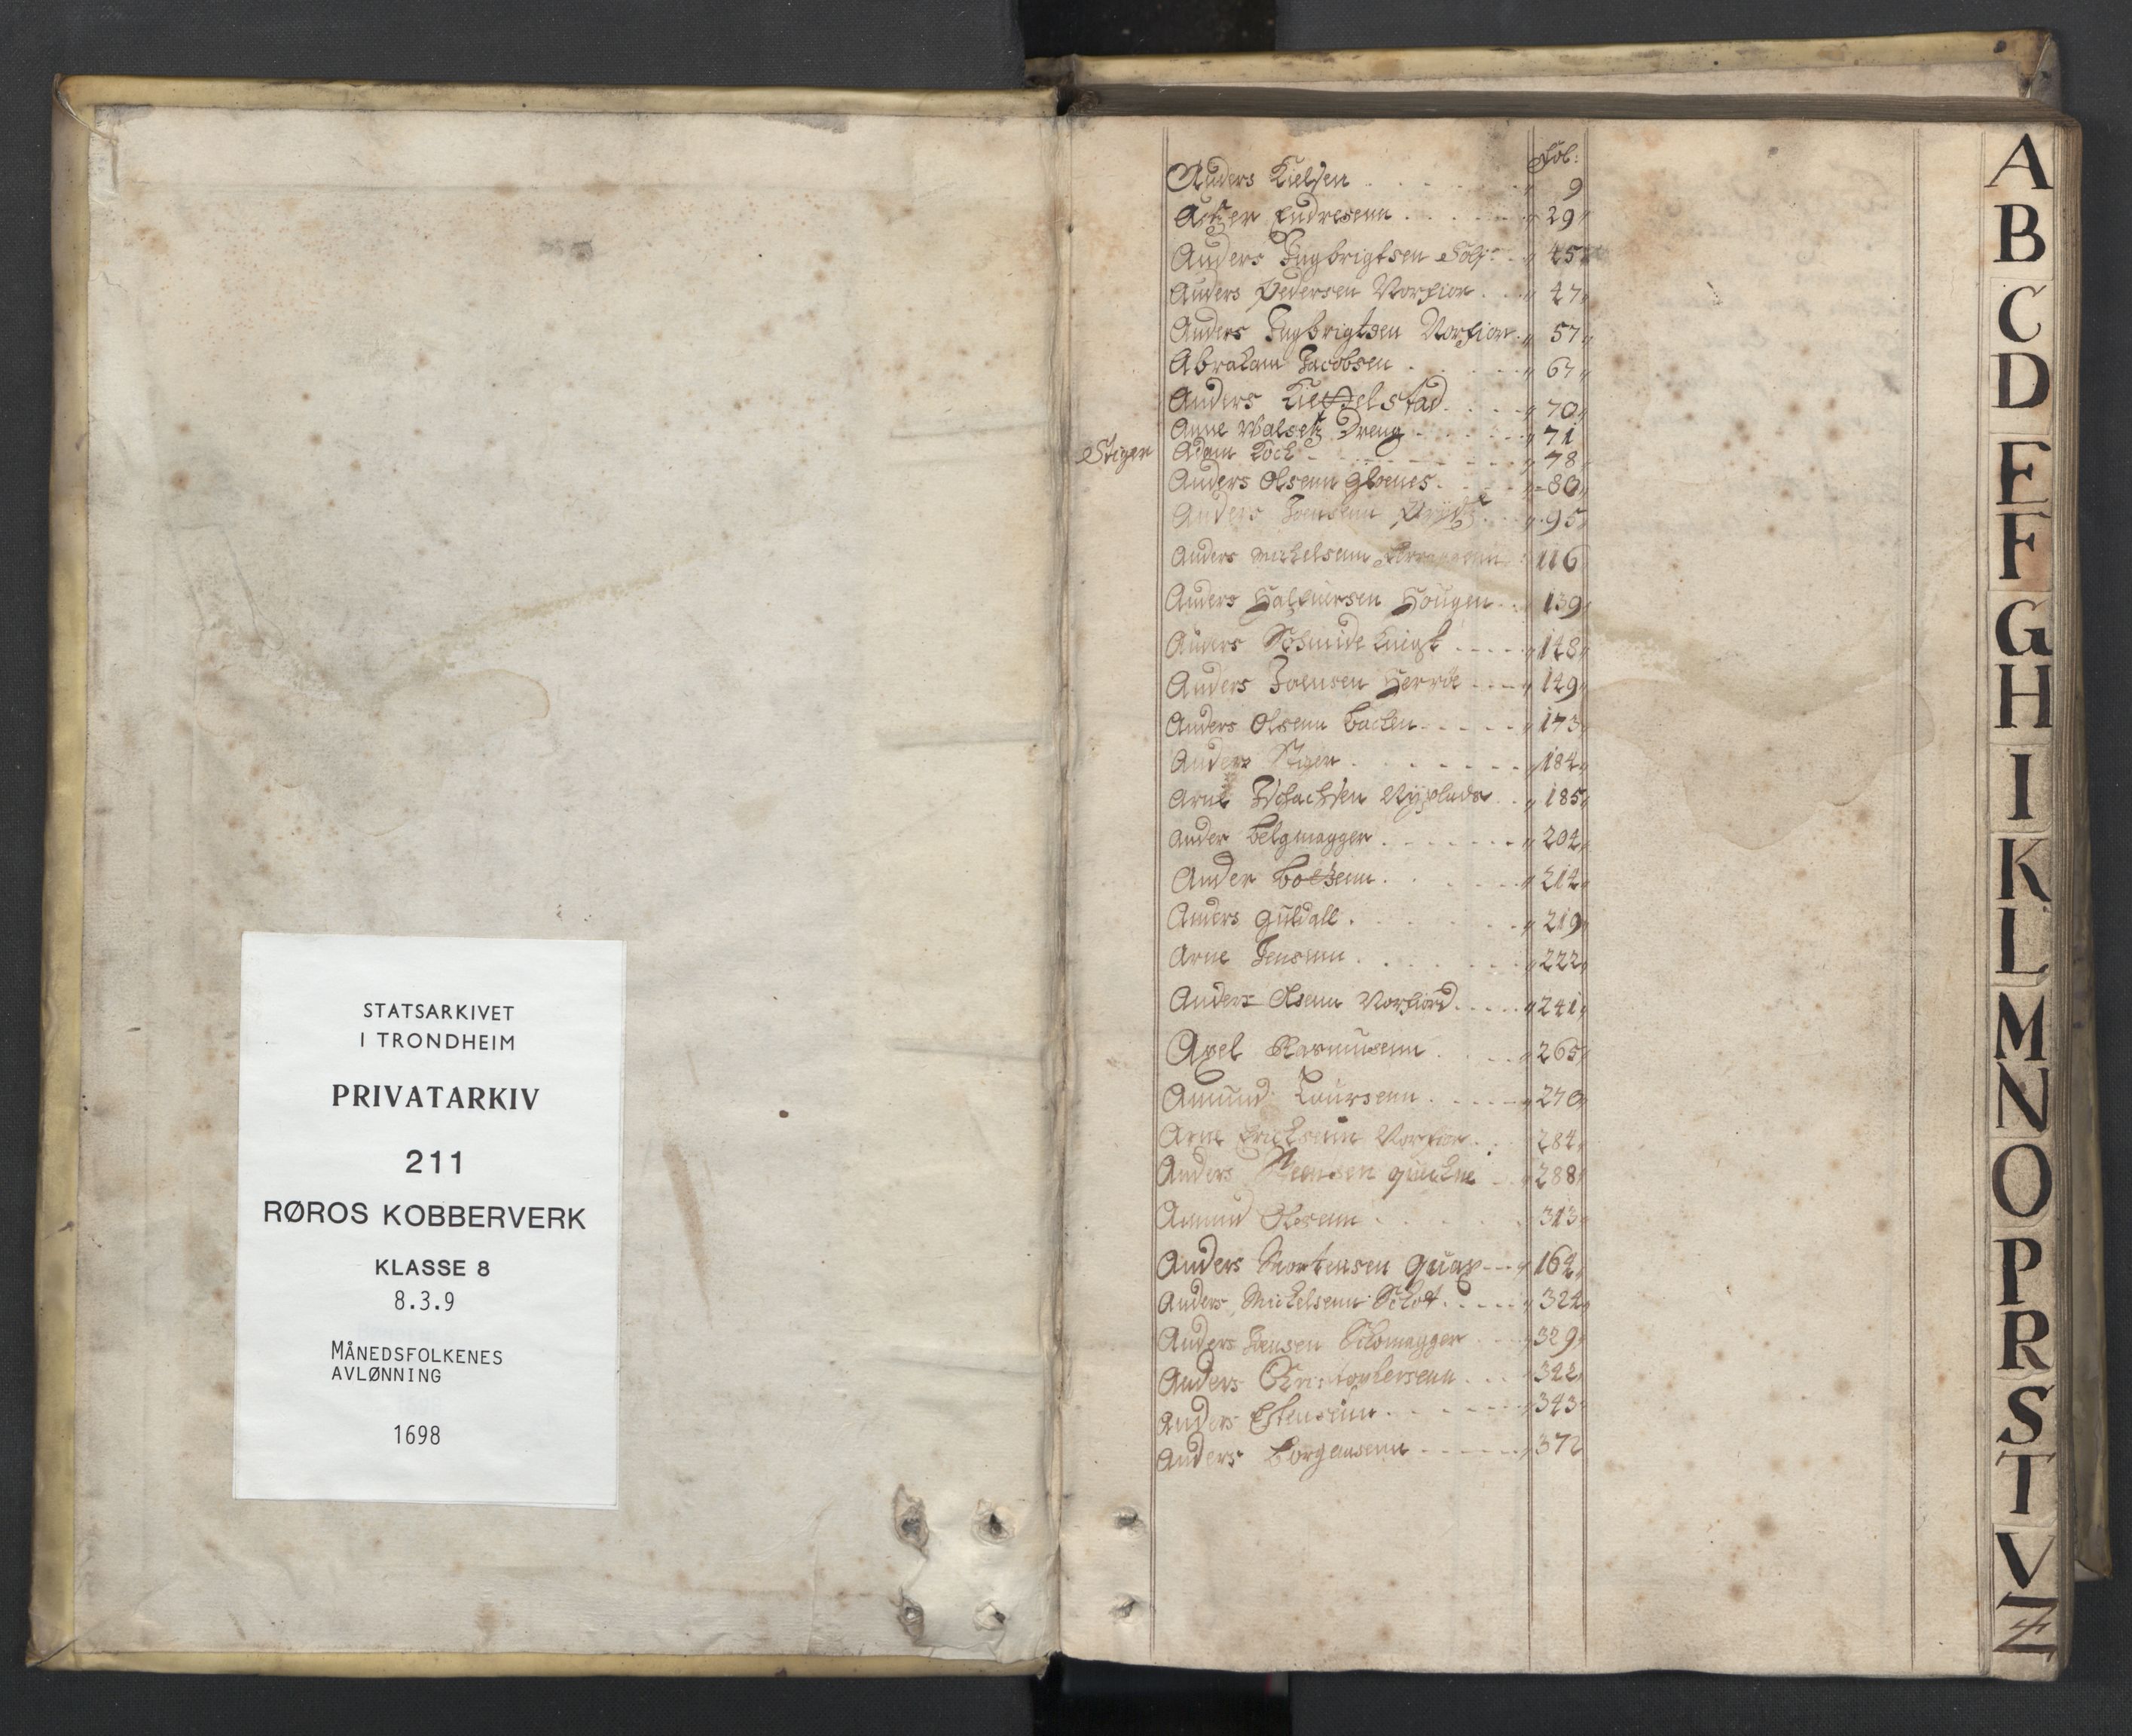 STATSARKIVET
I TRONDHEIM
PRIVATARKIV
211
RØROS KOBBERVERK
KLASSE 8
8.3.9
MÅNEDSFOLKENES
AVLØNNING
1698
Fol:
Anders Kielsen 9
Endresenn 29
Anders Ingbrigtsen 45
Anders Pedersen Norfior 47
Anders Ingbrigtsen Norfior 57
Abraham Jacobsen 67
Anders 70
Anne Dreng 71
Stiger Adam Koch 78
Anders Olsenn 80
Anders 95
Anders Michelsenn 116
Anders Halvuersen Hougen 139
Anders Schmide Knegt 148
Anders Joensen Herröe 149
Anders Olsenn Backen 173
Anders Stiger 184
Arne 185
Ander Belgmagger 204
Ander 214
Anders Guldall 219
Arne Jensenn 222
Anders Olsenn Norfiord 241
Axel Rasmusenn 265
Amund Laursenn 270
Arne Erichsenn Norfior 284
Anders quichne 288
Amund Olesenn 313
Anders Mortensen 164
Anders Michelsenn Schot 324
Anders Jensen Schomagger 329
Anders Christophersenn 342
Anders Estensenn 343
Anders Borgensenn 372
A
B
C
D
E
F
G
H
I
K
L
M
N
O
P
R
S
T
V
Z